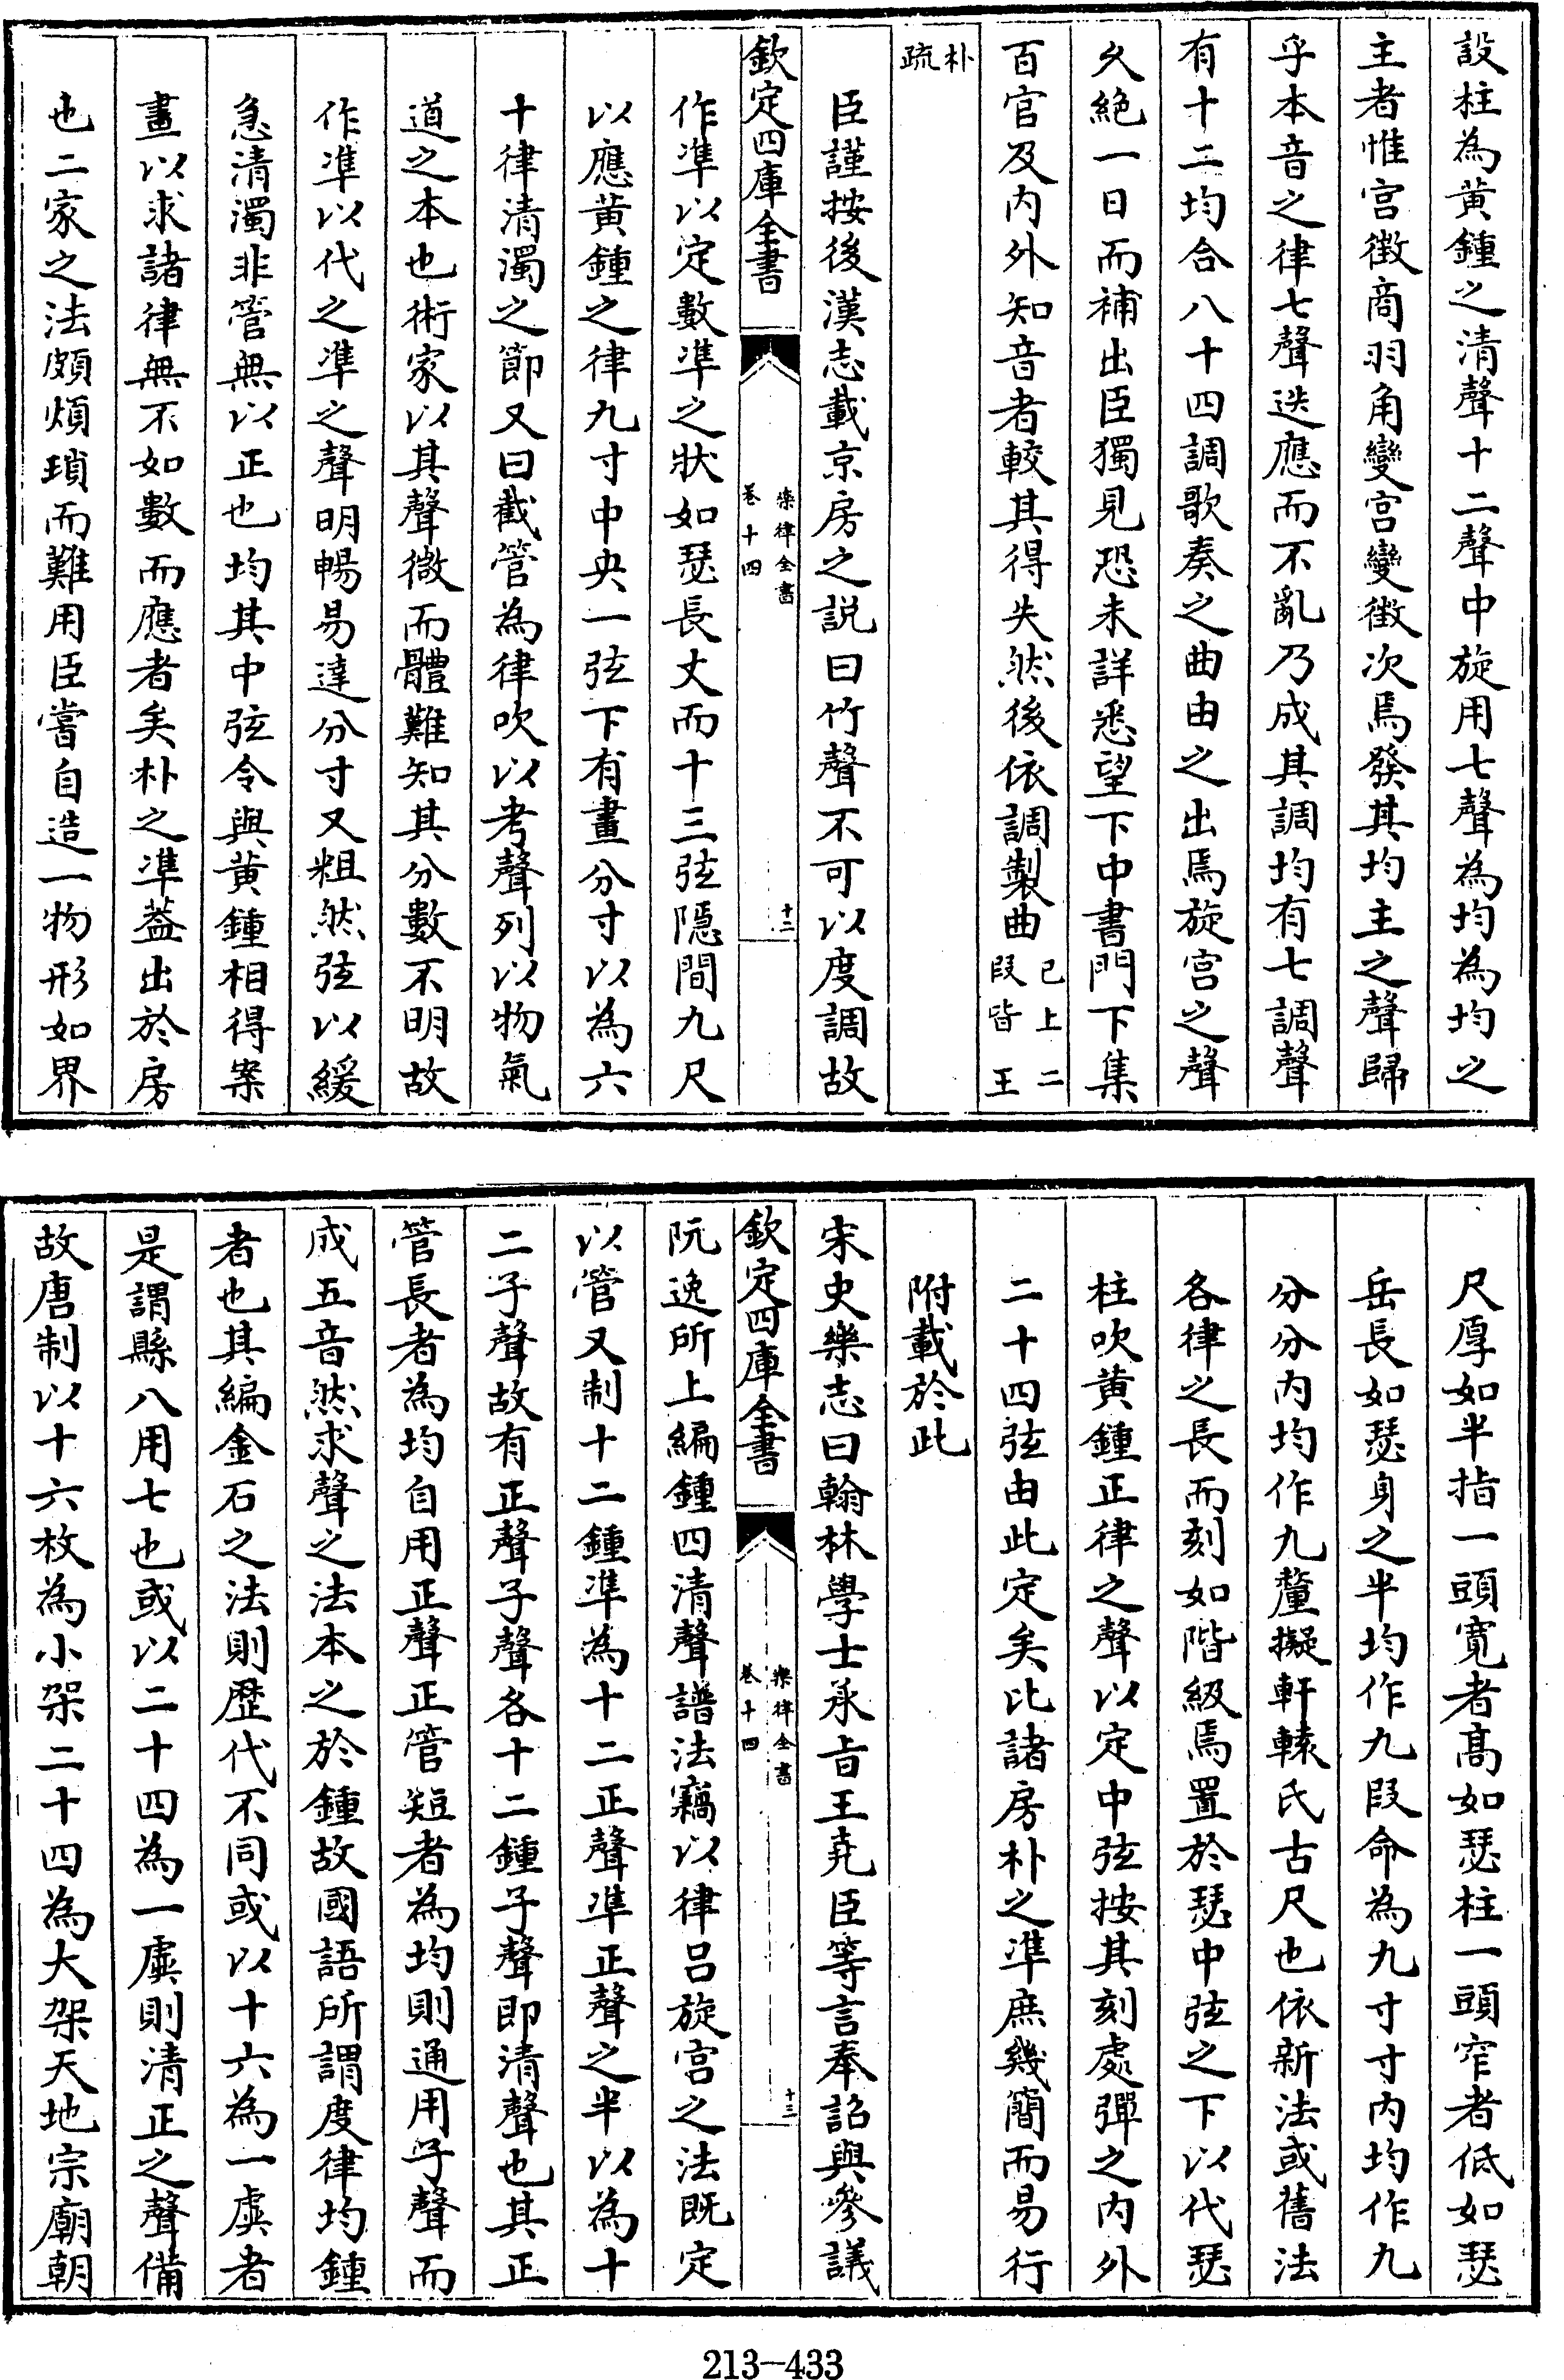 設柱為黃鍾之清聲十二聲中旋用七聲為均為均之
主者惟宫徴商羽角變宫變徴次焉發其均主之聲歸
乎本音之律七聲迭應而不亂乃成其調均有七調聲
有十二均合八十四調歌奏之曲由之出焉旋宫之聲
久絶一日而補出臣獨見恐未詳悉望下中書門下集
百官及内外知音者較其得失然後依調製曲已上二段皆王
朴疏
臣謹按後漢志載京房之説曰竹聲不可以度調故
欽定四庫全書
樂律全書
卷十四
十二
作凖以定數凖之状如瑟長丈而十三弦隱間九尺
以應黃鍾之律九寸中央一弦下有畫分寸以為六
十律清濁之節又曰截管為律吹以考聲列以物氣
道之本也術家以其聲微而體難知其分數不明故
作凖以代之凖之聲明暢易達分寸又粗然弦以緩
急清濁非管無以正也均其中弦令與黃鍾相得案
畫以求諸律無不如數而應者矣朴之凖葢出於房
也二家之法頗煩瑣而難用臣嘗自造一物形如界
尺厚如半指一頭寛者髙如瑟柱一頭窄者低如瑟
岳長如瑟身之半均作九段命為九寸寸内均作九
分分内均作九釐擬軒轅氏古尺也依新法或舊法
各律之長而刻如階級焉置於瑟中弦之下以代瑟
柱吹黃鍾正律之聲以定中弦按其刻處彈之内外
二十四弦由此定矣比諸房朴之凖庶幾簡而易行
附載於此
宋史樂志曰翰林學士承旨王堯臣等言奉詔與參議
欽定四庫全書
樂律全書
卷十四
十三
阮逸所上編鍾四清聲譜法竊以律吕旋宫之法既定
以管又制十二鍾凖為十二正聲凖正聲之半以為十
二子聲故有正聲子聲各十二鍾子聲即清聲也其正
管長者為均自用正聲正管短者為均則通用子聲而
成五音然求聲之法本之於鍾故國語所謂度律均鍾
者也其編金石之法則歴代不同或以十六為一虡者
是謂縣八用七也或以二十四為一虡則清正之聲備
故唐制以十六枚為小架二十四為大架天地宗廟朝
213-433